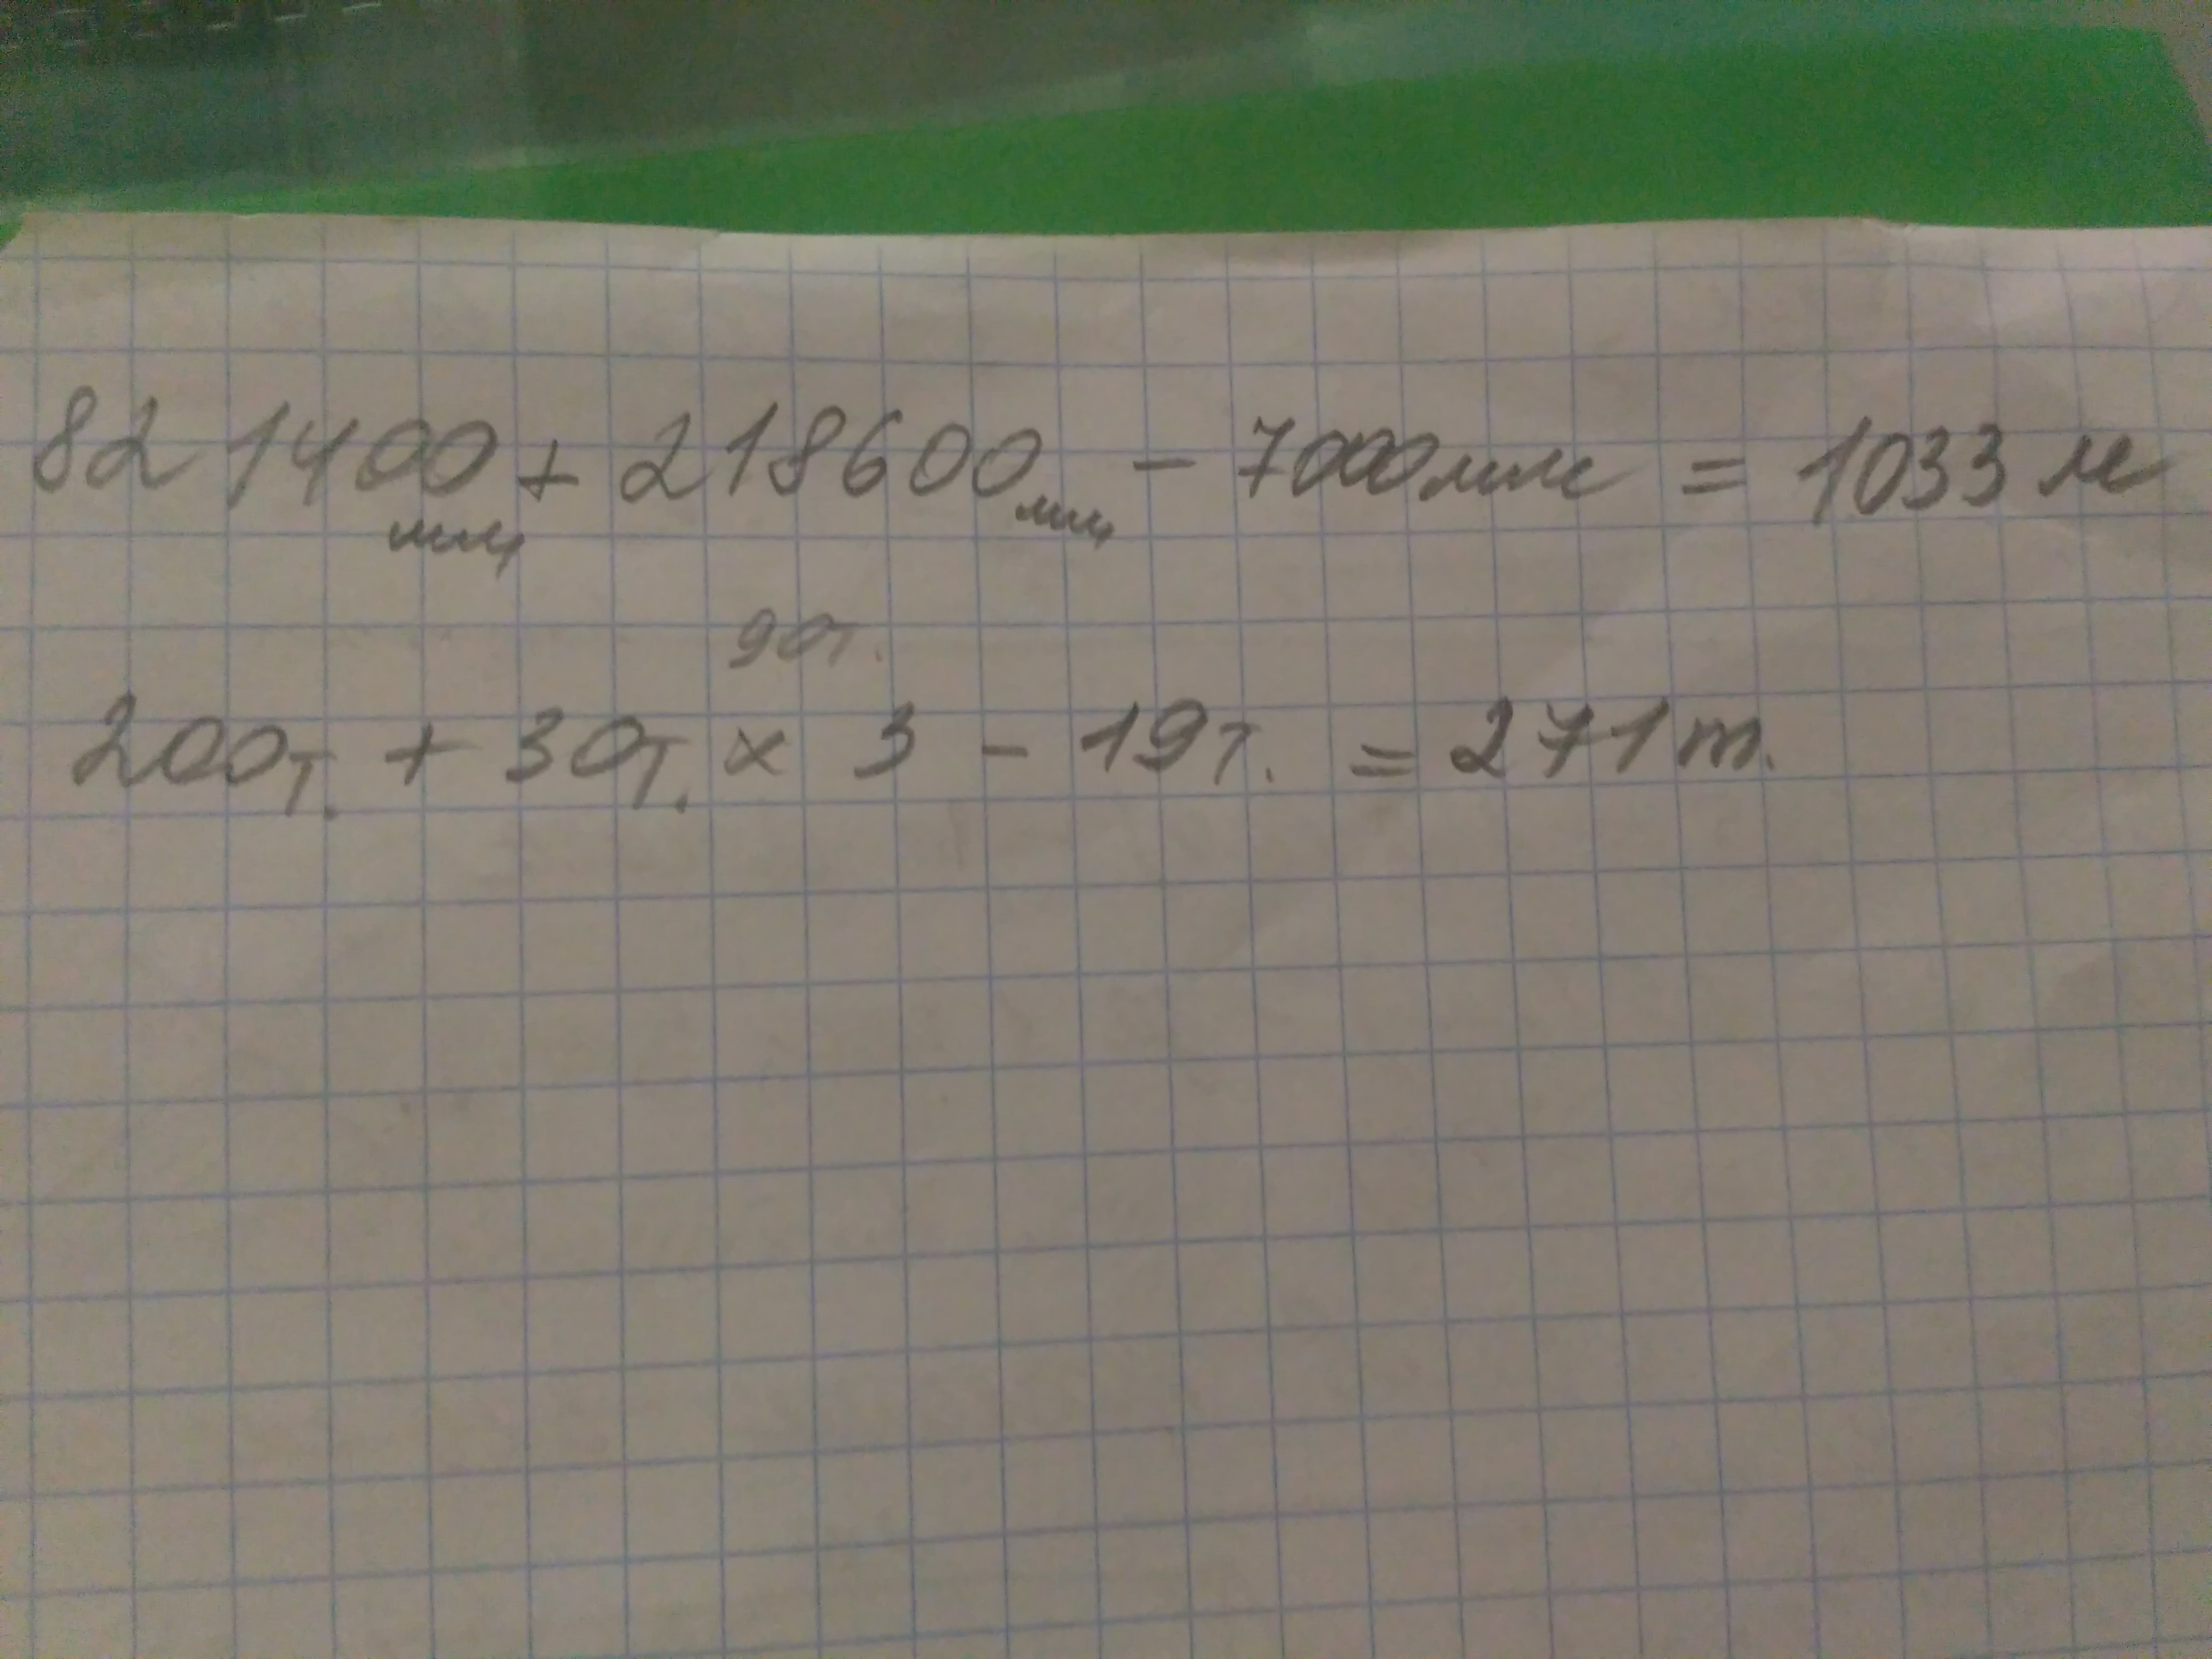 821400мм + 218600мм - 7000мм = 1033 м
90т.
200т. + 30т. × 3 - 19т. = 271 т.